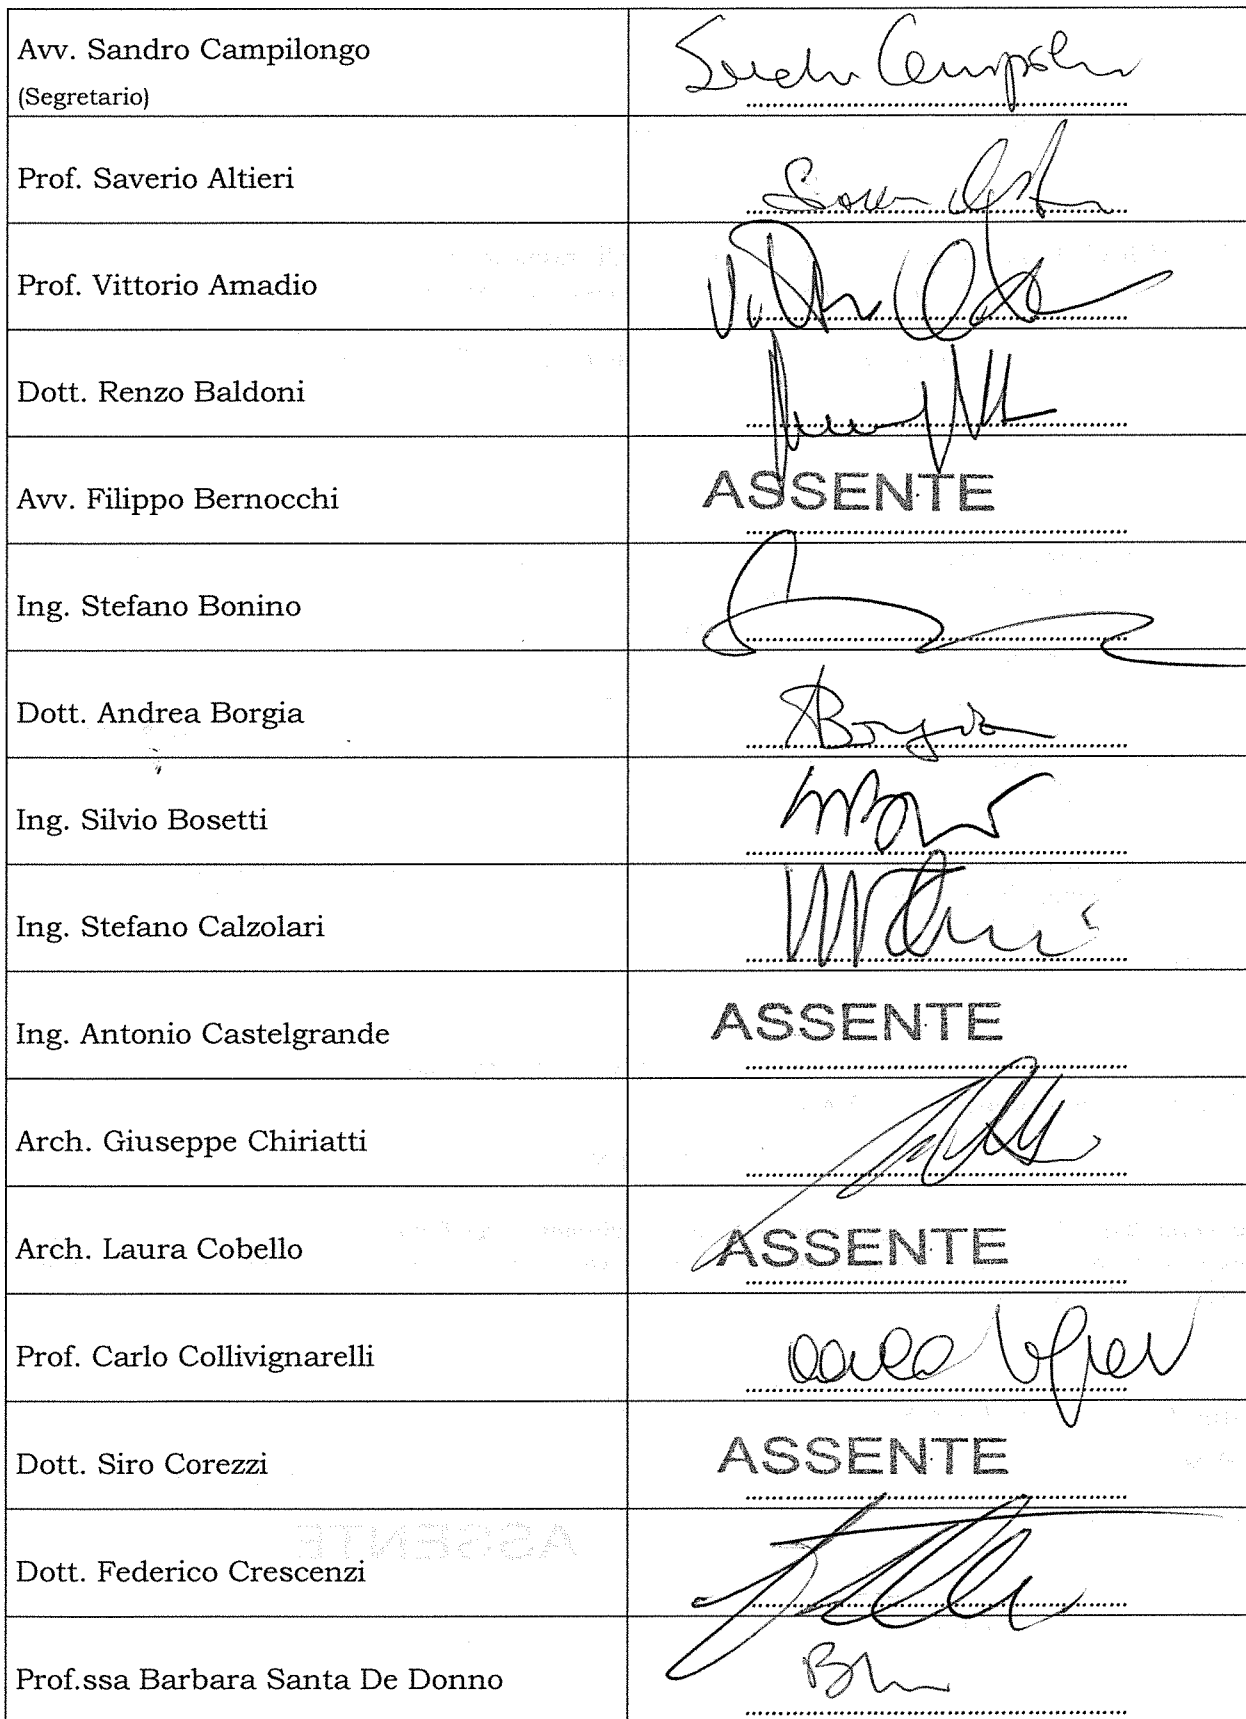 Avv. Sandro Campilongo
(Segretario)
Prof. Saverio Altieri
Prof. Vittorio Amadio
Dott. Renzo Baldoni
Avv. Filippo Bernocchi ASSENTE
Ing. Stefano Bonino
Dott. Andrea Borgia
Ing. Silvio Bosetti
Ing. Stefano Calzolari
Ing. Antonio Castelgrande ASSENTE
Arch. Giuseppe Chiriatti
Arch. Laura Cobello ASSENTE
Prof. Carlo Collivignarelli
Dott. Siro Corezzi ASSENTE
Dott. Federico Crescenzi
Prof.ssa Barbara Santa De Donno